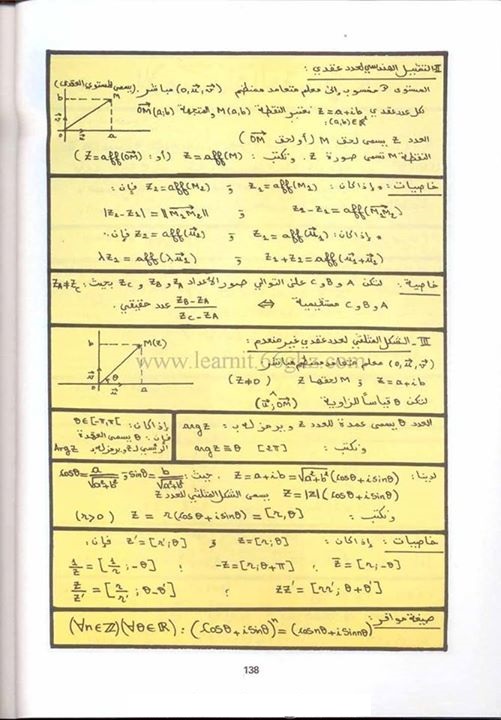 II - التمثيل الهندسي لعدد عقدي :
المستوى P منسوب إلى معلم متعامد ممنظم (0, u⃗, v⃗) مباشر. (يسمى المستوى العقدي)
لكل عدد عقدي z = a+ib نعتبر النقطة M(a;b) والمتجهة OM⃗(a;b)
(a;b) ∈ ℝ²
العدد z يسمى لحق M (أو لحق OM⃗)
النقطة M تسمى صورة z. ونكتب : z = aff(M) (أو : z = aff(OM⃗))
b M a
خاصيات : * إذا كان : z₁ = aff(M₁) و z₂ = aff(M₂) فإن :
z₂ - z₁ = aff(M₁M₂⃗) و |z₂ - z₁| = ||M₁M₂⃗||
* إذا كان : z₁ = aff(u⃗₁) و z₂ = aff(u⃗₂) فإن :
z₁ + z₂ = aff(u⃗₁ + u⃗₂) و λz₁ = aff(λu⃗₁)
خاصية : لتكن A و B و C على التوالي صور الأعداد z_A و z_B و z_C بحيث : z_A ≠ z_C
A و B و C مستقيمية ⇔ (z_B - z_A)/(z_C - z_A) عدد حقيقي.
III - الشكل المثلثي لعدد عقدي غير منعدم :
(0, u⃗, v⃗) معلم متعامد ممنظم مباشر.
z = a+ib و M لحقها z (z ≠ 0)
لتكن θ قياسا للزاوية (u⃗; OM⃗)
b M(z) θ a
www.learnit.6
العدد θ يسمى عمدة للعدد z ويرمز له بـ : arg z
ونكتب : arg z ≡ θ [2π]
إذا كان : θ ∈ ]-π, π]
فإن : θ يسمى العمدة
الرئيسي لـ z ويرمز له بـ Arg z
لدينا : z = a+ib = √(a²+b²) (cosθ + i sinθ) حيث : sinθ = b/√(a²+b²) و cosθ = a/√(a²+b²)
z = |z| (cosθ + i sinθ) يسمى الشكل المثلثي للعدد z
ونكتب : z = r(cosθ + i sinθ) = [r, θ] (r > 0)
خاصيات : إذا كان : z = [r; θ] و z' = [r'; θ'] فإن :
z̄ = [r; -θ] ; -z = [r; θ+π] ; 1/z = [1/r ; -θ]
zz' = [rr' ; θ+θ'] ; z/z' = [r/r' ; θ-θ']
صيغة موافر : (∀n∈ℤ)(∀θ∈ℝ) : (cosθ + i sinθ)ⁿ = (cos nθ + i sin nθ)
138